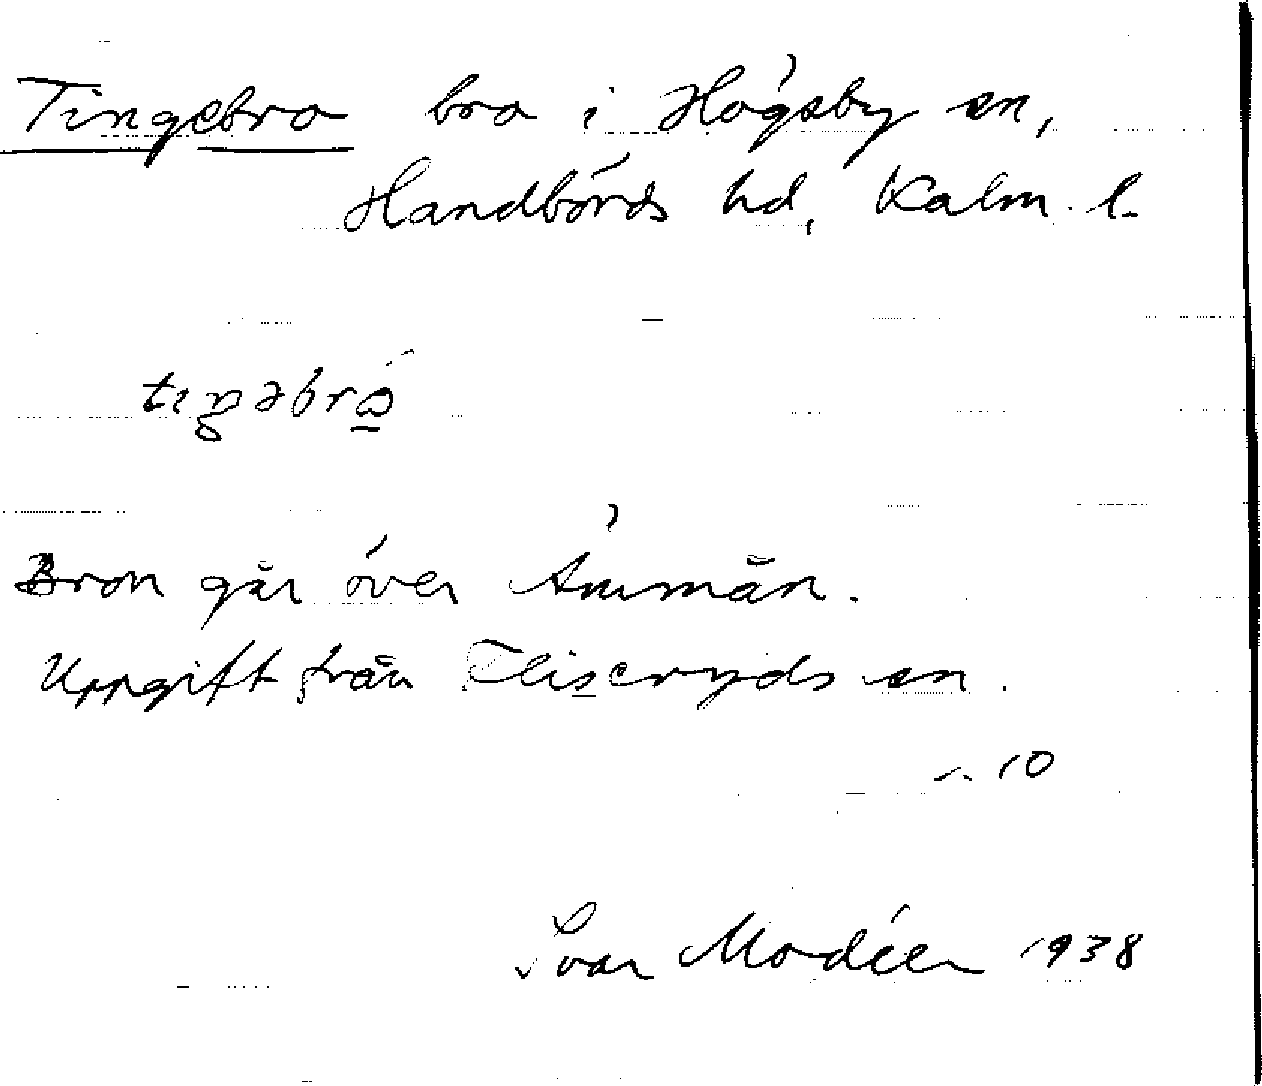 Tingebro bro i Högsby sn,
Handbörds hd, Kalm. l.
tıŋəbrώ̲
Bron går över Åmmån.
Uppgift från Fliseryds sn.
10
Ivar Modéer 1938